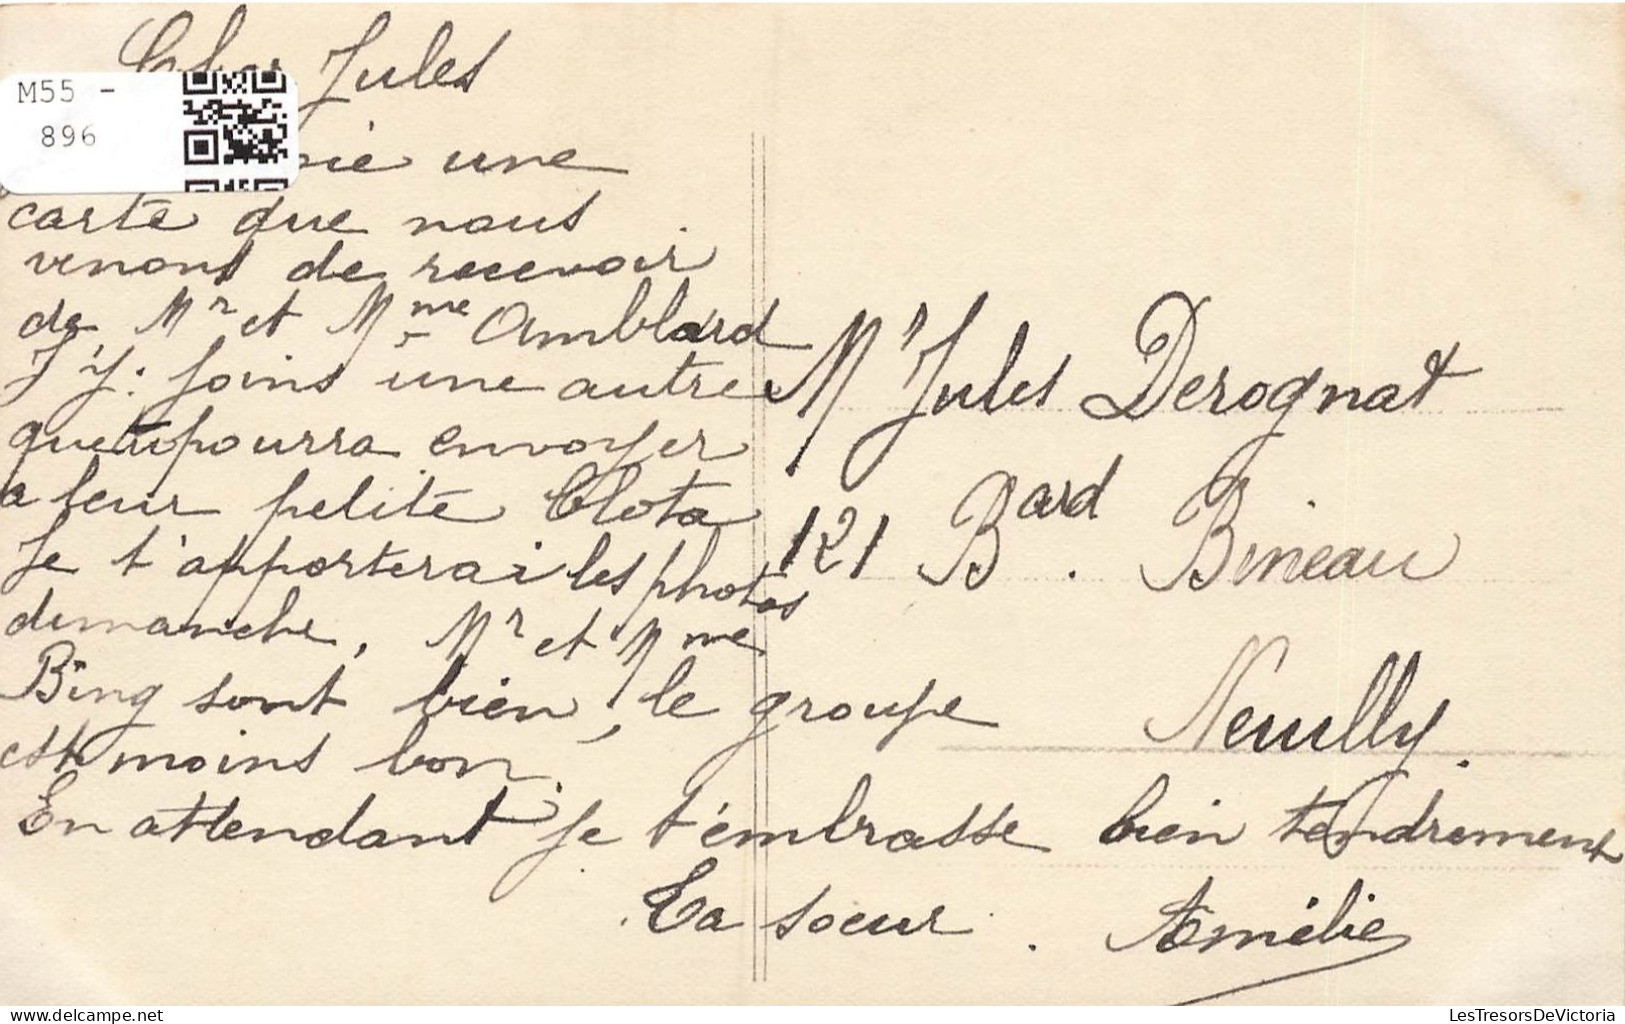 Cher Jules
M55 -
896
une
carte que nous
venons de recevoir
de Mr et Mme Amblard
J'y joins une autre
que tu pourra envoyer
a leur petite Clota
Je t'apporterai les photos
dimanche, Mr et Mme
Bing sont bien, le groupe
est moins bon.
En attendant je t'embrasse bien tendrement
Ta soeur. Amélie
Mr Jules Derognat
121 Bard. Bineau
Neuilly.
delcampe.net
LesTresorsDeVictoria